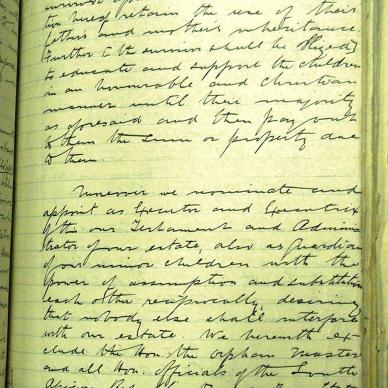 tion hereof retain the use of their
fathers and mothers inheritance.
Further the survivor shall be obliged
to educate and support the children
in an honourable and Christian
manner until their majority
as aforesaid and then pay out
to them the sum or property due
to them.
Moreover we nominate and
appoint as Executor and Executrix
of this our Testament and Adminis
trator of our estate, also as Guardian
of our minor children with the
power of assumption and substitution
each other reciprocally, desiring
that nobody else shall interfere
with our estate. We herewith ex-
clude the Hon. the Orphan Master
and all Hon. Officials of the South